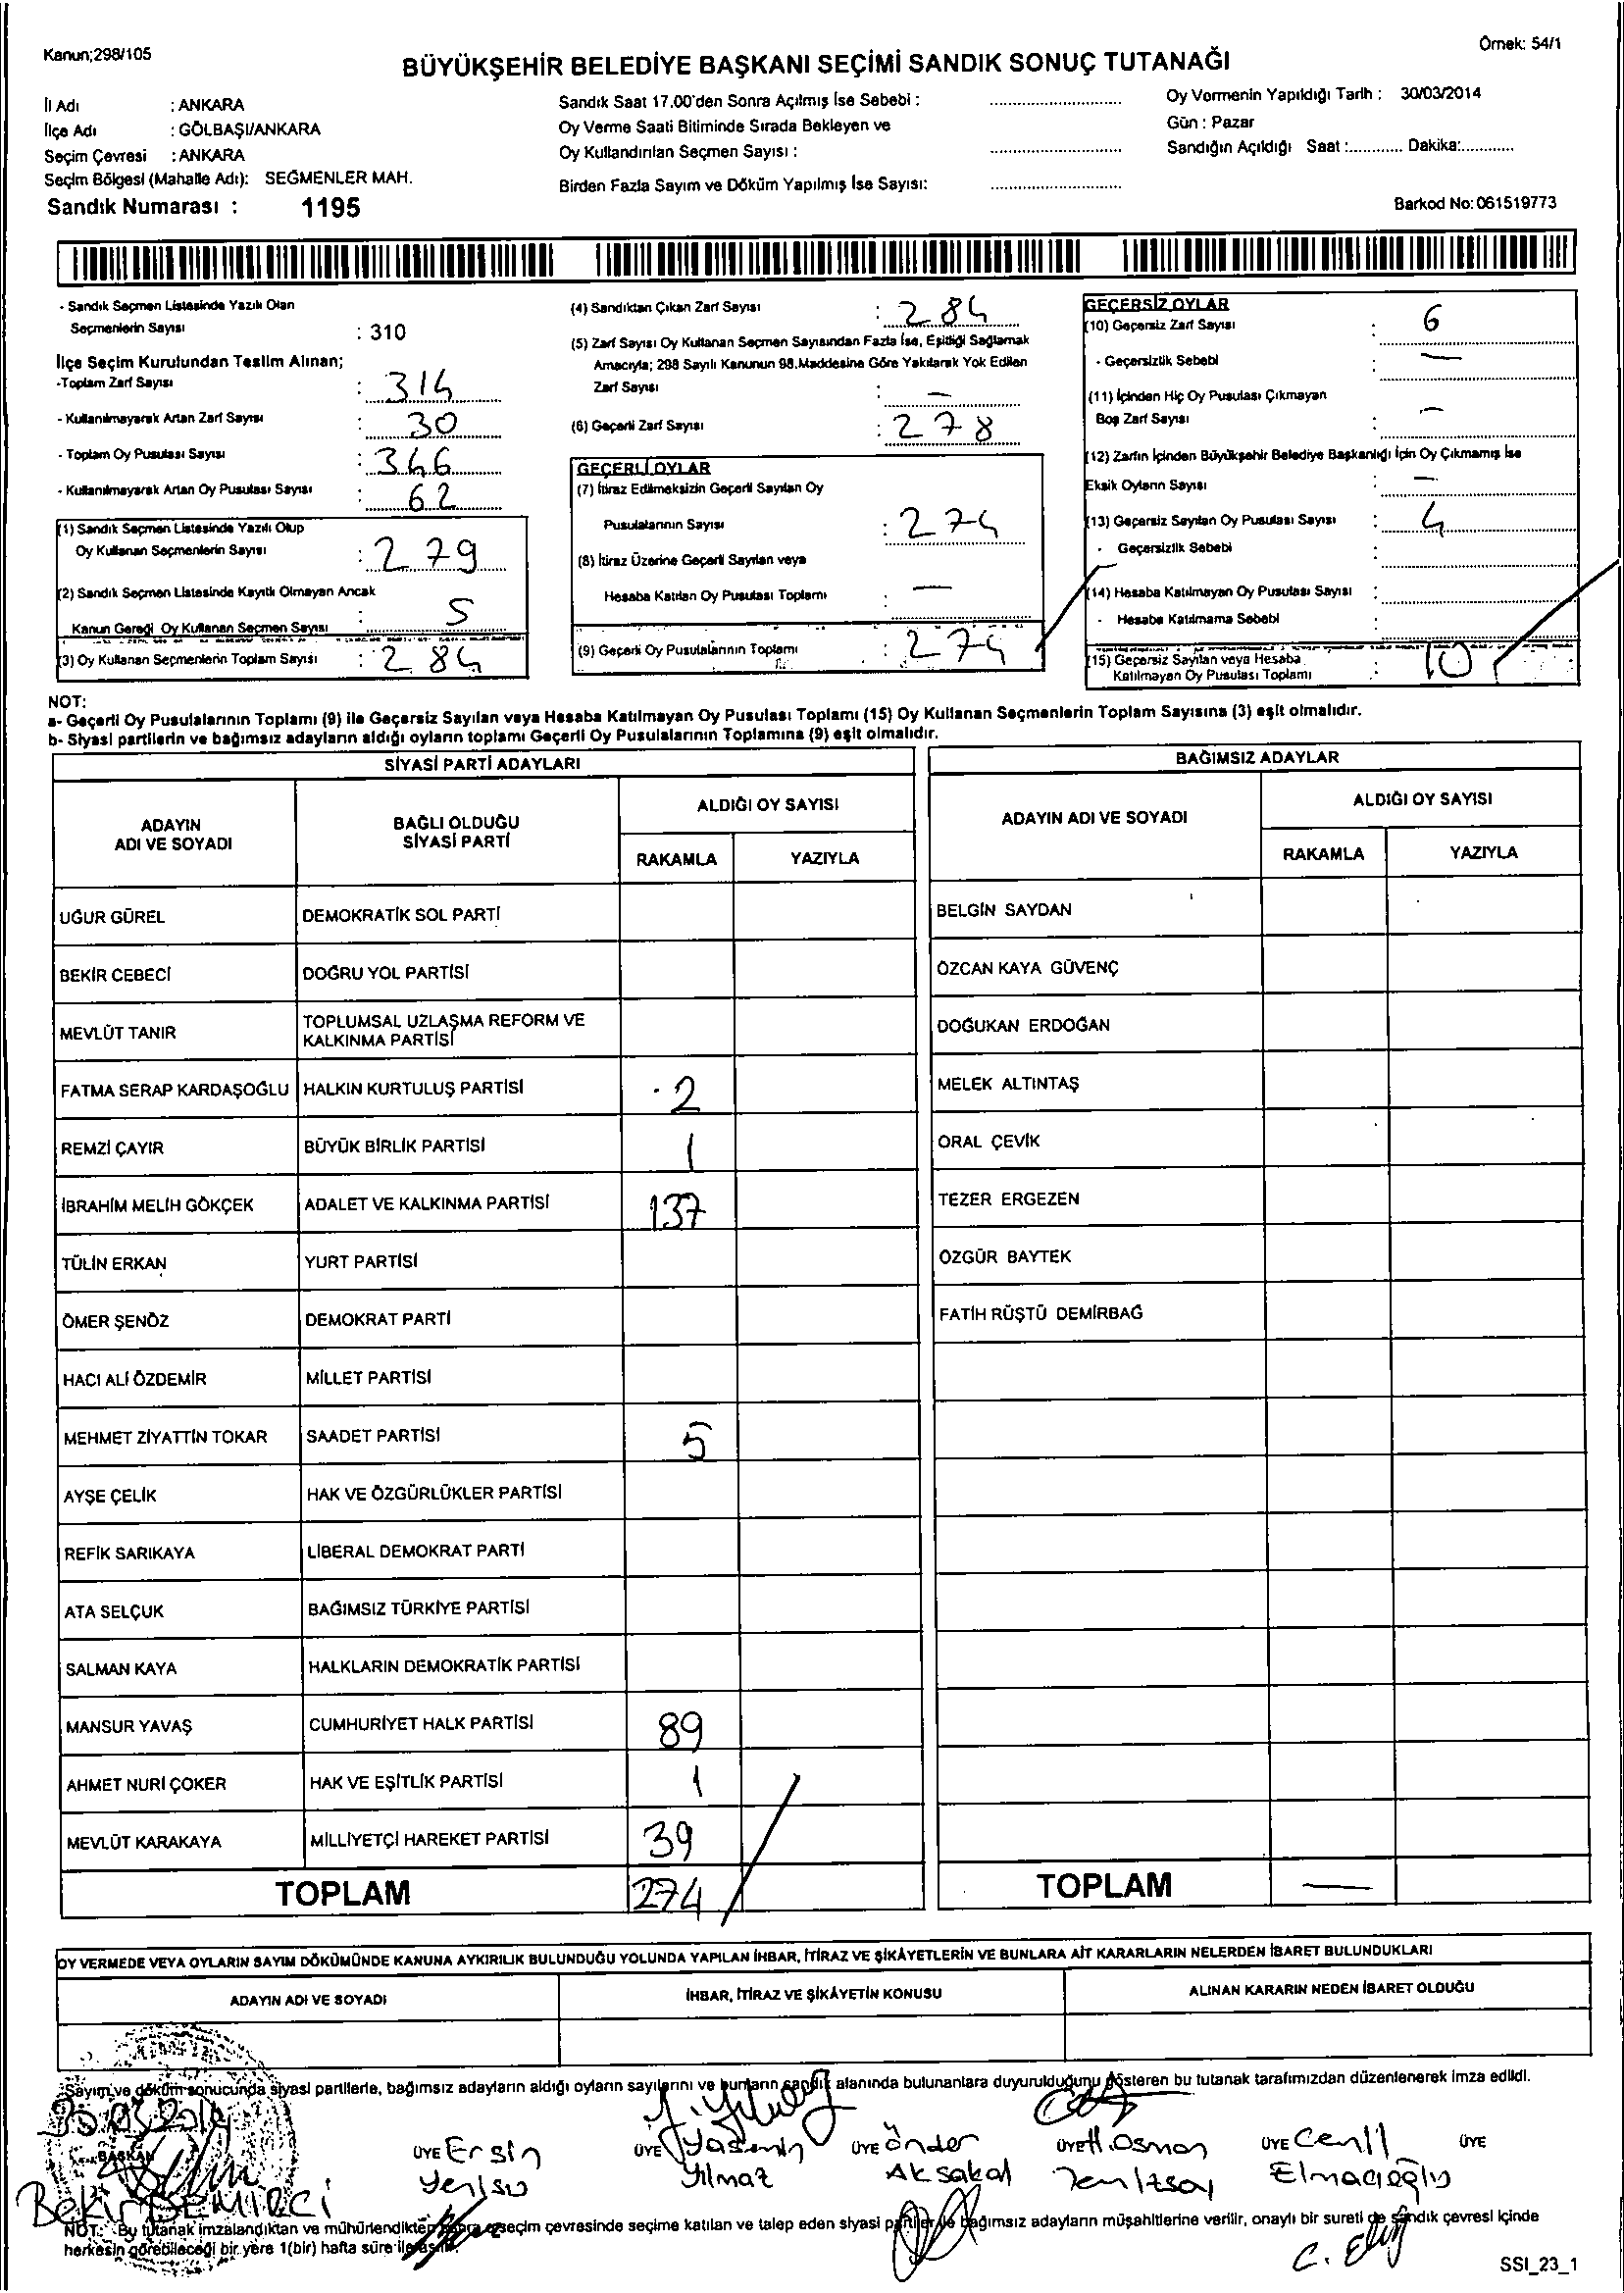 Kanun;298/105
Örnek: 54/1
BÜYÜKŞEHİR BELEDİYE BAŞKANI SEÇİMİ SANDIK SONUÇ TUTANAĞI
İl Adı : ANKARA
İlçe Adı : GÖLBAŞI/ANKARA
Seçim Çevresi : ANKARA
Seçim Bölgesi (Mahalle Adı): SEĞMENLER MAH.
Sandık Numarası : 1195
Sandık Saat 17.00'den Sonra Açılmış İse Sebebi :
Oy Verme Saati Bitiminde Sırada Bekleyen ve
Oy Kullandırılan Seçmen Sayısı :
Birden Fazla Sayım ve Döküm Yapılmış İse Sayısı:
Oy Vermenin Yapıldığı Tarih : 30/03/2014
Gün : Pazar
Sandığın Açıldığı Saat :............ Dakika:............
Barkod No: 061519773
- Sandık Seçmen Listesinde Yazılı Olan
Seçmenlerin Sayısı : 310
İlçe Seçim Kurulundan Teslim Alınan;
-Toplam Zarf Sayısı : 314
- Kullanılmayarak Artan Zarf Sayısı : 30
- Toplam Oy Pusulası Sayısı : 346
- Kullanılmayarak Artan Oy Pusulası Sayısı : 62
(1) Sandık Seçmen Listesinde Yazılı Olup
Oy Kullanan Seçmenlerin Sayısı : 279
(2) Sandık Seçmen Listesinde Kayıtlı Olmayan Ancak
Kanun Gereği Oy Kullanan Seçmen Sayısı : 5
(3) Oy Kullanan Seçmenlerin Toplam Sayısı : 284
(4) Sandıktan Çıkan Zarf Sayısı : 284
(5) Zarf Sayısı Oy Kullanan Seçmen Sayısından Fazla İse, Eşitliği Sağlamak
Amacıyla; 298 Sayılı Kanunun 98.Maddesine Göre Yakılarak Yok Edilen
Zarf Sayısı : —
(6) Geçerli Zarf Sayısı : 278
GEÇERLİ OYLAR
(7) İtiraz Edilmeksizin Geçerli Sayılan Oy
Pusulalarının Sayısı : 274
(8) İtiraz Üzerine Geçerli Sayılan veya
Hesaba Katılan Oy Pusulası Toplamı : —
(9) Geçerli Oy Pusulalarının Toplamı : 274
GEÇERSİZ OYLAR
(10) Geçersiz Zarf Sayısı : 6
- Geçersizlik Sebebi : —
(11) İçinden Hiç Oy Pusulası Çıkmayan
Boş Zarf Sayısı : —
(12) Zarfın İçinden Büyükşehir Belediye Başkanlığı İçin Oy Çıkmamış İse
Eksik Oyların Sayısı : —
(13) Geçersiz Sayılan Oy Pusulası Sayısı : 4
- Geçersizlik Sebebi :
(14) Hesaba Katılmayan Oy Pusulası Sayısı :
- Hesaba Katılmama Sebebi
(15) Geçersiz Sayılan veya Hesaba
Katılmayan Oy Pusulası Toplamı : 10
NOT:
a- Geçerli Oy Pusulalarının Toplamı (9) ile Geçersiz Sayılan veya Hesaba Katılmayan Oy Pusulası Toplamı (15) Oy Kullanan Seçmenlerin Toplam Sayısına (3) eşit olmalıdır.
b- Siyasi partilerin ve bağımsız adayların aldığı oyların toplamı Geçerli Oy Pusulalarının Toplamına (9) eşit olmalıdır.
SİYASİ PARTİ ADAYLARI
ADAYIN ADI VE SOYADI BAĞLI OLDUĞU SİYASİ PARTİ ALDIĞI OY SAYISI
RAKAMLA YAZIYLA
UĞUR GÜREL DEMOKRATİK SOL PARTİ
BEKİR CEBECİ DOĞRU YOL PARTİSİ
MEVLÜT TANIR TOPLUMSAL UZLAŞMA REFORM VE KALKINMA PARTİSİ
FATMA SERAP KARDAŞOĞLU HALKIN KURTULUŞ PARTİSİ 2
REMZİ ÇAYIR BÜYÜK BİRLİK PARTİSİ 1
İBRAHİM MELİH GÖKÇEK ADALET VE KALKINMA PARTİSİ 137
TÜLİN ERKAN YURT PARTİSİ
ÖMER ŞENÖZ DEMOKRAT PARTİ
HACI ALİ ÖZDEMİR MİLLET PARTİSİ
MEHMET ZİYATTİN TOKAR SAADET PARTİSİ 5
AYŞE ÇELİK HAK VE ÖZGÜRLÜKLER PARTİSİ
REFİK SARIKAYA LİBERAL DEMOKRAT PARTİ
ATA SELÇUK BAĞIMSIZ TÜRKİYE PARTİSİ
SALMAN KAYA HALKLARIN DEMOKRATİK PARTİSİ
MANSUR YAVAŞ CUMHURİYET HALK PARTİSİ 89
AHMET NURİ ÇOKER HAK VE EŞİTLİK PARTİSİ 1
MEVLÜT KARAKAYA MİLLİYETÇİ HAREKET PARTİSİ 39
TOPLAM 274
BAĞIMSIZ ADAYLAR
ADAYIN ADI VE SOYADI ALDIĞI OY SAYISI
RAKAMLA YAZIYLA
BELGİN SAYDAN
ÖZCAN KAYA GÜVENÇ
DOĞUKAN ERDOĞAN
MELEK ALTINTAŞ
ORAL ÇEVİK
TEZER ERGEZEN
ÖZGÜR BAYTEK
FATİH RÜŞTÜ DEMİRBAĞ
TOPLAM —
OY VERMEDE VEYA OYLARIN SAYIM DÖKÜMÜNDE KANUNA AYKIRILIK BULUNDUĞU YOLUNDA YAPILAN İHBAR, İTİRAZ VE ŞİKÂYETLERİN VE BUNLARA AİT KARARLARIN NELERDEN İBARET BULUNDUKLARI
ADAYIN ADI VE SOYADI İHBAR, İTİRAZ VE ŞİKÂYETİN KONUSU ALINAN KARARIN NEDEN İBARET OLDUĞU
Sayım ve döküm sonucunda siyasi partilerle, bağımsız adayların aldığı oyların sayılarını ve bunların sandık alanında bulunanlara duyurulduğunu gösteren bu tutanak tarafımızdan düzenlenerek imza edildi.
30.03.2014
BAŞKAN ÜYE Ersin ÜYE Yasemin ÜYE Önder ÜYE H.Osman ÜYE Cenll ÜYE
Bekir DEMİRCİ Yenisu Yılmaz Aksakal Elmacıoğlu
NOT: Bu tutanak imzalandıktan ve mühürlendikten sonra seçim çevresinde seçime katılan ve talep eden siyasi partiler ile bağımsız adayların müşahitlerine verilir, onaylı bir sureti de sandık çevresi içinde
herkesin görebileceği bir yere 1(bir) hafta süre ile asılır.
SSI_23_1